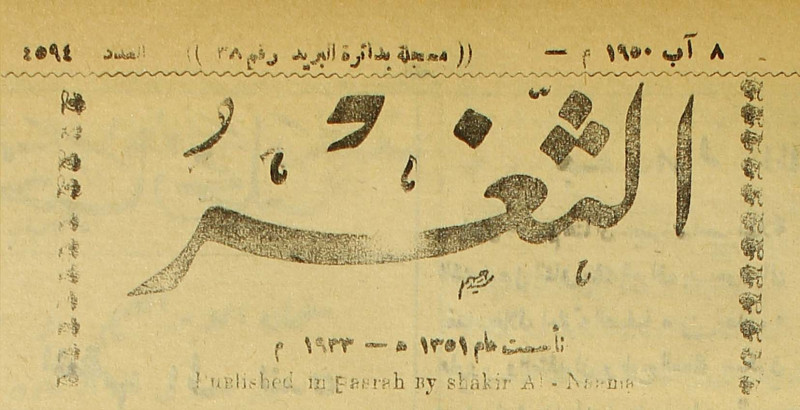 ٨ آب ١٩٥٠ م — (( مسجلة بدائرة البريد رقم ٣٨ )) العدد ٤٥٩٤
الثغر
تأسست عام ١٣٥١ ه — ١٩٣٣ م
Published in Basrah By shakir Al - Naama